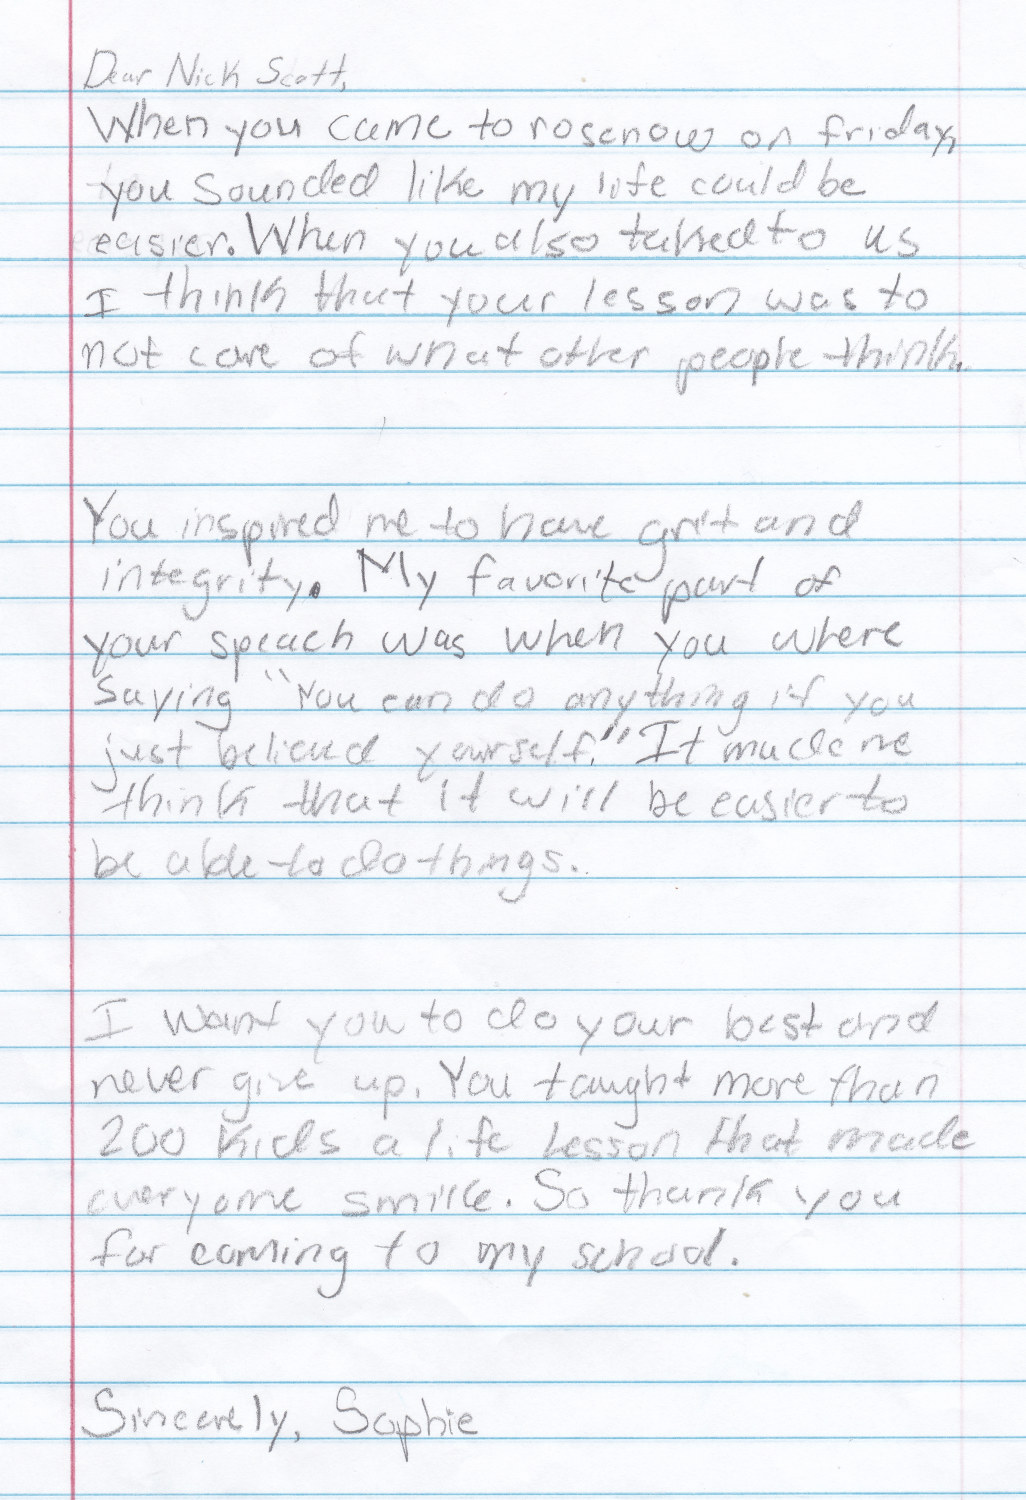 Dear Nick Scott,
When you came to rosenow on friday,
you sounded like my life could be
easier. When you also talked to us
I think that your lesson was to
not care of what other people think.
You inspired me to have grit and
integrity. My favorite part of
your speach was when you where
saying "You can do anything if you
just believd yourself." It made me
think that it will be easier to
be able to do things.
I want you to do your best and
never give up. You taught more than
200 kids a life lesson that made
everyone smile. So thank you
for coming to my school.
Sincerely, Sophie